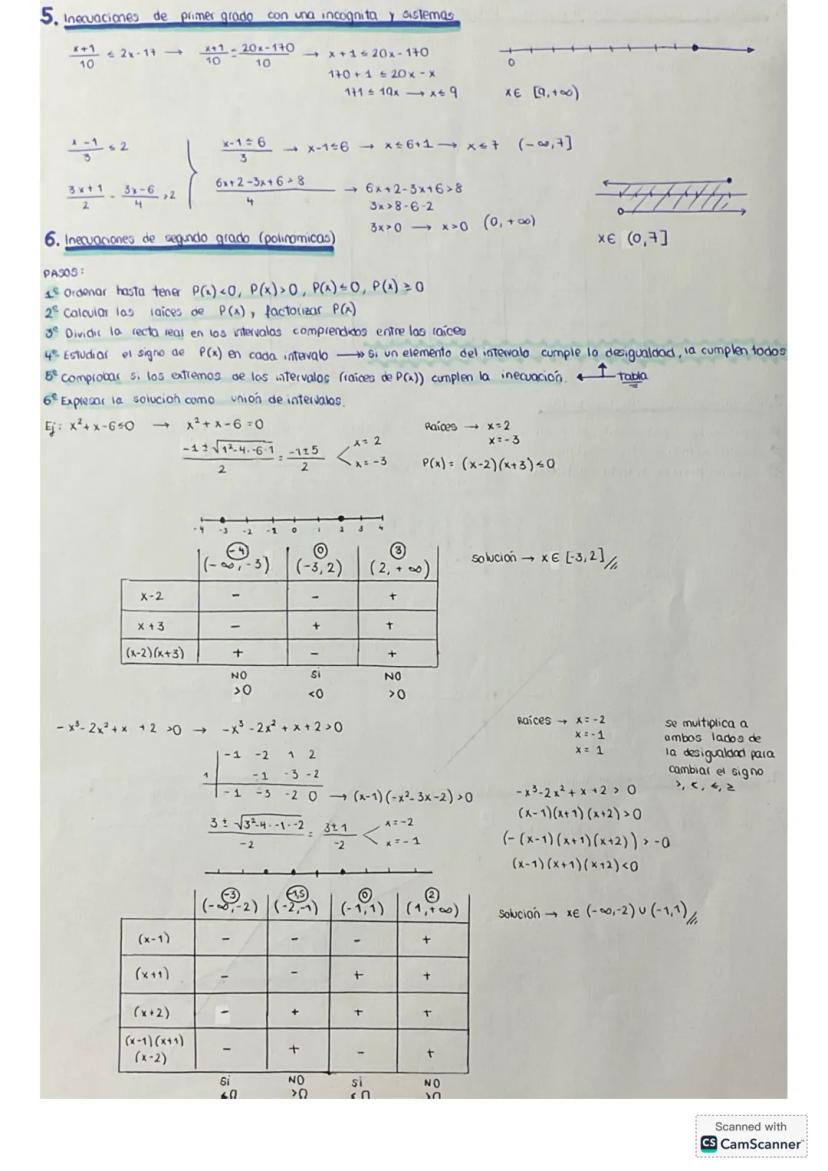 5. Inecuaciones de primer grado con una incognita y sistemas
x+1/10 ≤ 2x-17 → x+1/10 = 20x-170/10 → x+1 ≤ 20x-170
170+1 ≤ 20x-x
171 ≤ 19x → x ≤ 9
0
x∈ [9,+∞)
x-1/3 ≤ 2
x-1 ≤ 6/3 → x-1 ≤ 6 → x ≤ 6+1 → x ≤ 7 (-∞,7]
3x+1/2 - 3x-6/4 > 2
6x+2-3x+6 > 8/4 → 6x+2-3x+6 > 8
3x > 8-6-2
3x > 0 → x > 0 (0,+∞)
x∈ (0,7]
6. Inecuaciones de segundo grado (polinomicas)
PASOS:
1º Ordenar hasta tener P(x)<0, P(x)>0, P(x)≤0, P(x)≥0
2º Calcular las raíces de P(x), factorizar P(x)
3º Dividir la recta real en los intervalos comprendidos entre las raíces
4º Estudiar el signo de P(x) en cada intervalo → Si un elemento del intervalo cumple la desigualdad, la cumplen todos
5º Comprobar si los extremos de los intervalos (raíces de P(x)) cumplen la inecuación. ← ↑ Tabla
6º Expresar la solución como unión de intervalos.
Ej: x²+x-6≤0 → x²+x-6=0
-1±√1²-4·-6·1/2 = -1±5/2 < x=2
x=-3
Raíces → x=2
x=-3
P(x)= (x-2)(x+3)≤0
-4 -3 -2 -1 0 1 2 3 4
-4 0 3
(-∞,-3) (-3,2) (2,+∞)
x-2 - - +
x+3 - + +
(x-2)(x+3) + - +
NO Si NO
>0 <0 >0
Solución → x∈ [-3,2]//
-x³-2x²+x+2 >0 → -x³-2x²+x+2>0
-1 -2 1 2
1 -1 -3 -2
-1 -3 -2 0 → (x-1)(-x²-3x-2)>0
3±√3²-4·-1·-2/-2 = 3±1/-2 < x=-2
x=-1
Raíces → x=-2
x=-1
x=1
-x³-2x²+x+2 > 0
(x-1)(x+1)(x+2)>0
(-(x-1)(x+1)(x+2)) > -0
(x-1)(x+1)(x+2)<0
se multiplica a
ambos lados de
la desigualdad para
cambiar el signo
>, <, ≤, ≥
-3 -1,5 0 2
(-∞,-2) (-2,-1) (-1,1) (1,+∞)
(x-1) - - - +
(x+1) - - + +
(x+2) - + + +
(x-1)(x+1)
(x-2) - + - +
Si NO Si NO
≤0 >0 ≤0 >0
Solución → x∈ (-∞,-2) ∪ (-1,1)//
Scanned with
CS CamScanner